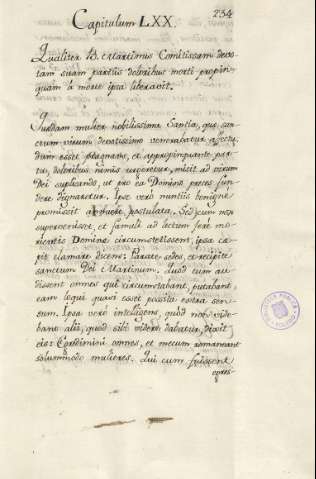 234
Capitulum LXX.
Qualiter B. Martinus Comitissam devo-
tam suam partus doloribus morti propin-
quam à morte ipsa liberavit.
Quædam mulier nobilissima Sancia, quæ sanc-
tum virum devotissime venerabatur affectu,
dum esset prægnans, et appropinquante par-
tu, doloribus nimis urgeretur, misit ad virum
Dei supplicando, ut pro ea Domino preces fun-
dere dignaretur. Ipse vero nuntiis benigne
promissit postulata. Sed cum non
supervenisset, et famili ad lectum ferè mo-
rientis Dominæ circumstetissent, ipsa cæ-
pit clamare dicens: Parate sedes, et recipite
sanctum Dei Martinum. Quod cum au-
dissent omnes qui circumstabant, putabant,
eam loqui quasi esset posita extra sen-
sum. Ipsa verò intelligens, quòd non vide-
bant alii, quod sibi videre dabatur, dixit
eis: Egredimini omnes, et mecum remaneant
solummodo mulieres. Qui cum fuissent
egres-